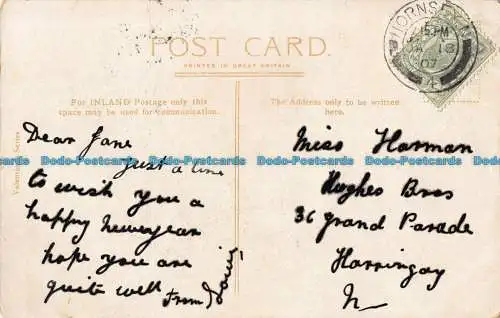 POST CARD.
PRINTED IN GREAT BRITAIN
For INLAND Postage only this
space may be used for communication.
The Address only to be written
here.
HORNSEY
JA 18
07
Dear Jane
just a line
to wish you a
happy newyear
hope you are
quite well
From
Miss Harman
Hughes Bros
36 grand Parade
Harringay
N
Dodo-Postcards Dodo-Postcards Dodo-Postcards Dodo-Postcards Dodo-Postcards
Dodo-Postcards Dodo-Postcards Dodo-Postcards Dodo-Postcards Dodo-Postcards